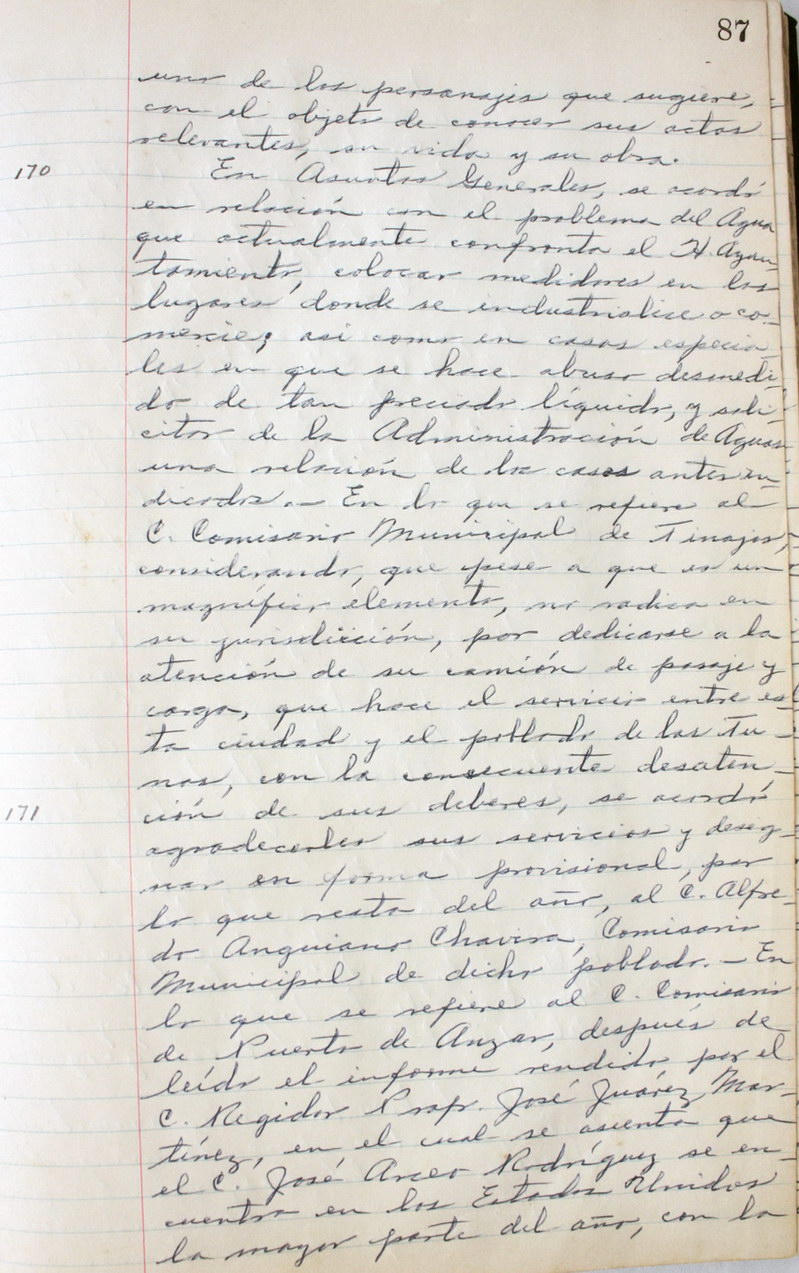 87
uno de los personajes que sugiere,
con el objeto de conocer sus actos
relevantes, su vida y su obra.
170
En Asuntos Generales, se acordó
en relación con el problema del Agua
que actualmente confronta el H. Ayun-
tamiento, colocar medidores en los
lugares donde se industrialice o co-
mercie; asi como en casos especia-
les en que se hace abuso desmedi-
do de tan preciado líquido, y soli-
citar de la Administración de Aguas
una relación de los casos antes in-
dicados.- En lo que se refiere al
C. Comisario Municipal de Tinajas,
considerando, que pese a que es un
magnífico elemento, no radica en
su jurisdicción, por dedicarse a la
atención de su camión de pasaje y
carga, que hace el servicio entre es-
ta ciudad y el poblado de las Tu-
nas, con la consecuente desaten-
171
ción de sus deberes, se acordó
agradecerles sus servicios y desig-
nar en forma provisional, por
lo que resta del año, al C. Alfre-
do Anguiano Chavira, Comisario
Municipal de dicho poblado.- En
lo que se refiere al C. Comisario
de Puerto de Anzar, después de
leído el informe rendido por el
C. Regidor Profr. José Juárez Mar-
tínez, en el cual se asienta que
el C. José Arceo Rodríguez se en-
cuentra en los Estados Unidos
la mayor parte del año, con la